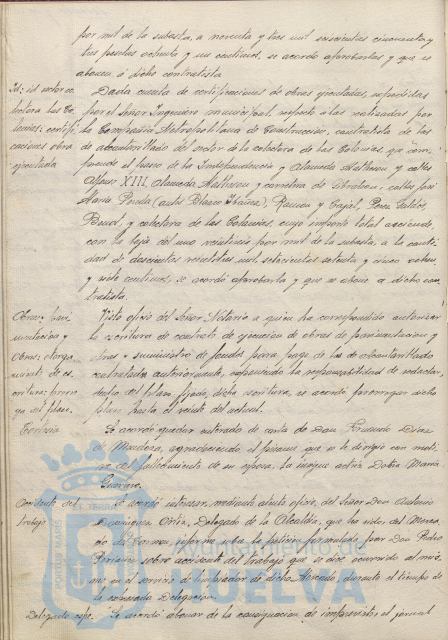 por mil de la subasta, a noventa y tres mil seiscientas cincuenta y
tres pesetas ochenta y un centimos, se acordó aprobarlas y que se
abonen a dicho contratista.
Id: id sector co-
lectora las Co-
lonias: certifi-
caciones obra
ejecutada
Dada cuenta de certificaciones de obras ejecutadas, expedidas
por el Señor Ingeniero municipal, respecto a las realizadas por
la Compañia Metropolitana de Construccion, contratista de las
de alcantarillado del sector de la colectora de las Colonias, que com-
prende el paseo de la Independencia y Alameda Matheu y calles
Alfonso XIII, Alameda Matheu y carretera de Gibraleon, calles José
Maria Pereda (antes Blasco Ibañez), Ramon y Cajal, Perez Galdós,
y colectora de las Colonias, cuyo importe total asciende
con la baja del uno veinticinco por mil de la subasta, a la canti-
dad de doscientas mil setecientas setenta y cinco
y siete centimos, se acordó aprobarla y que se abone a dicho con-
tratista.
Obras: pavi-
mentación y
Obras: otorga-
miento de es-
critura: prorro-
ga del plazo.
Visto oficio del Señor Notario a quien ha correspondido autorizar
la escritura de contrato de ejecucion de obras de pavimentacion y
otras y suministro de fondos para pago de las de alcantarillado
contratadas anteriormente, exponiendo la imposibilidad de redactar,
dentro del plazo fijado, dicha escritura, se acordó prorrogar dicho
plazo hasta el veinte del actual.
Se acordó quedar enterado de carta de Don Fernando Diaz
de Mendoza, agradeciendo el pésame que se le dirigió con moti-
vo del fallecimiento de su esposa, la insigne actriz Doña Maria
Guerrero.
Accidente del
trabajo
Se acordó interesar, mediante atento oficio, del Señor Don Antonio
Ortiz, Delegado de la Alcaldia, que ha sido del Merca-
do del Carmen, informe sobre la peticion formulada por Don Pedro
sobre accidente del trabajo que se dice ocurrido al mis-
mo en el servicio de limpiador de dicho Mercado, durante el tiempo de
la expresada Delegacion.
Delegado espe-
Se acordó abonar de la consignacion de imprevistos el jornal
PORTUS MARIS
ET TERRAE
Ayuntamiento de
HUELVA